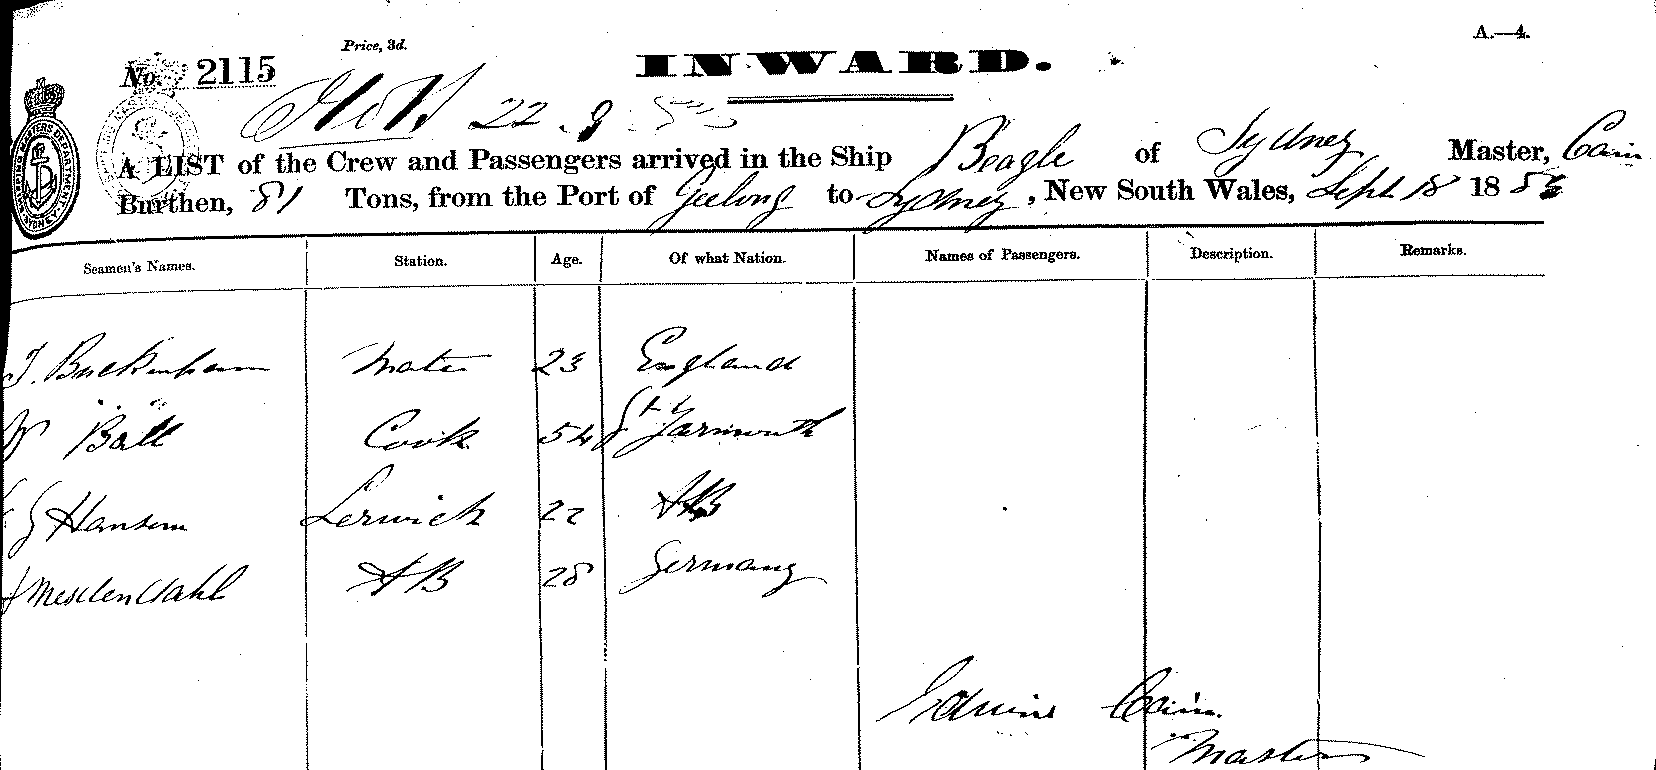 A.—4.
Price, 3d.
No. 2115
INWARD.
22.9.
A LIST of the Crew and Passengers arrived in the Ship Beagle of Sydney Master, Cain
Burthen, 81 Tons, from the Port of Geelong to Sydney, New South Wales, Sept 18 1885
Seamen's Names. Station. Age. Of what Nation. Names of Passengers. Description. Remarks.
T. Buckenham Mate 23 England
W Batt Cook 54 Gt Yarmouth
G Hansen Lerwick 22 AB
J Mesdendahl AB 28 Germany
Edwin Cain
Master